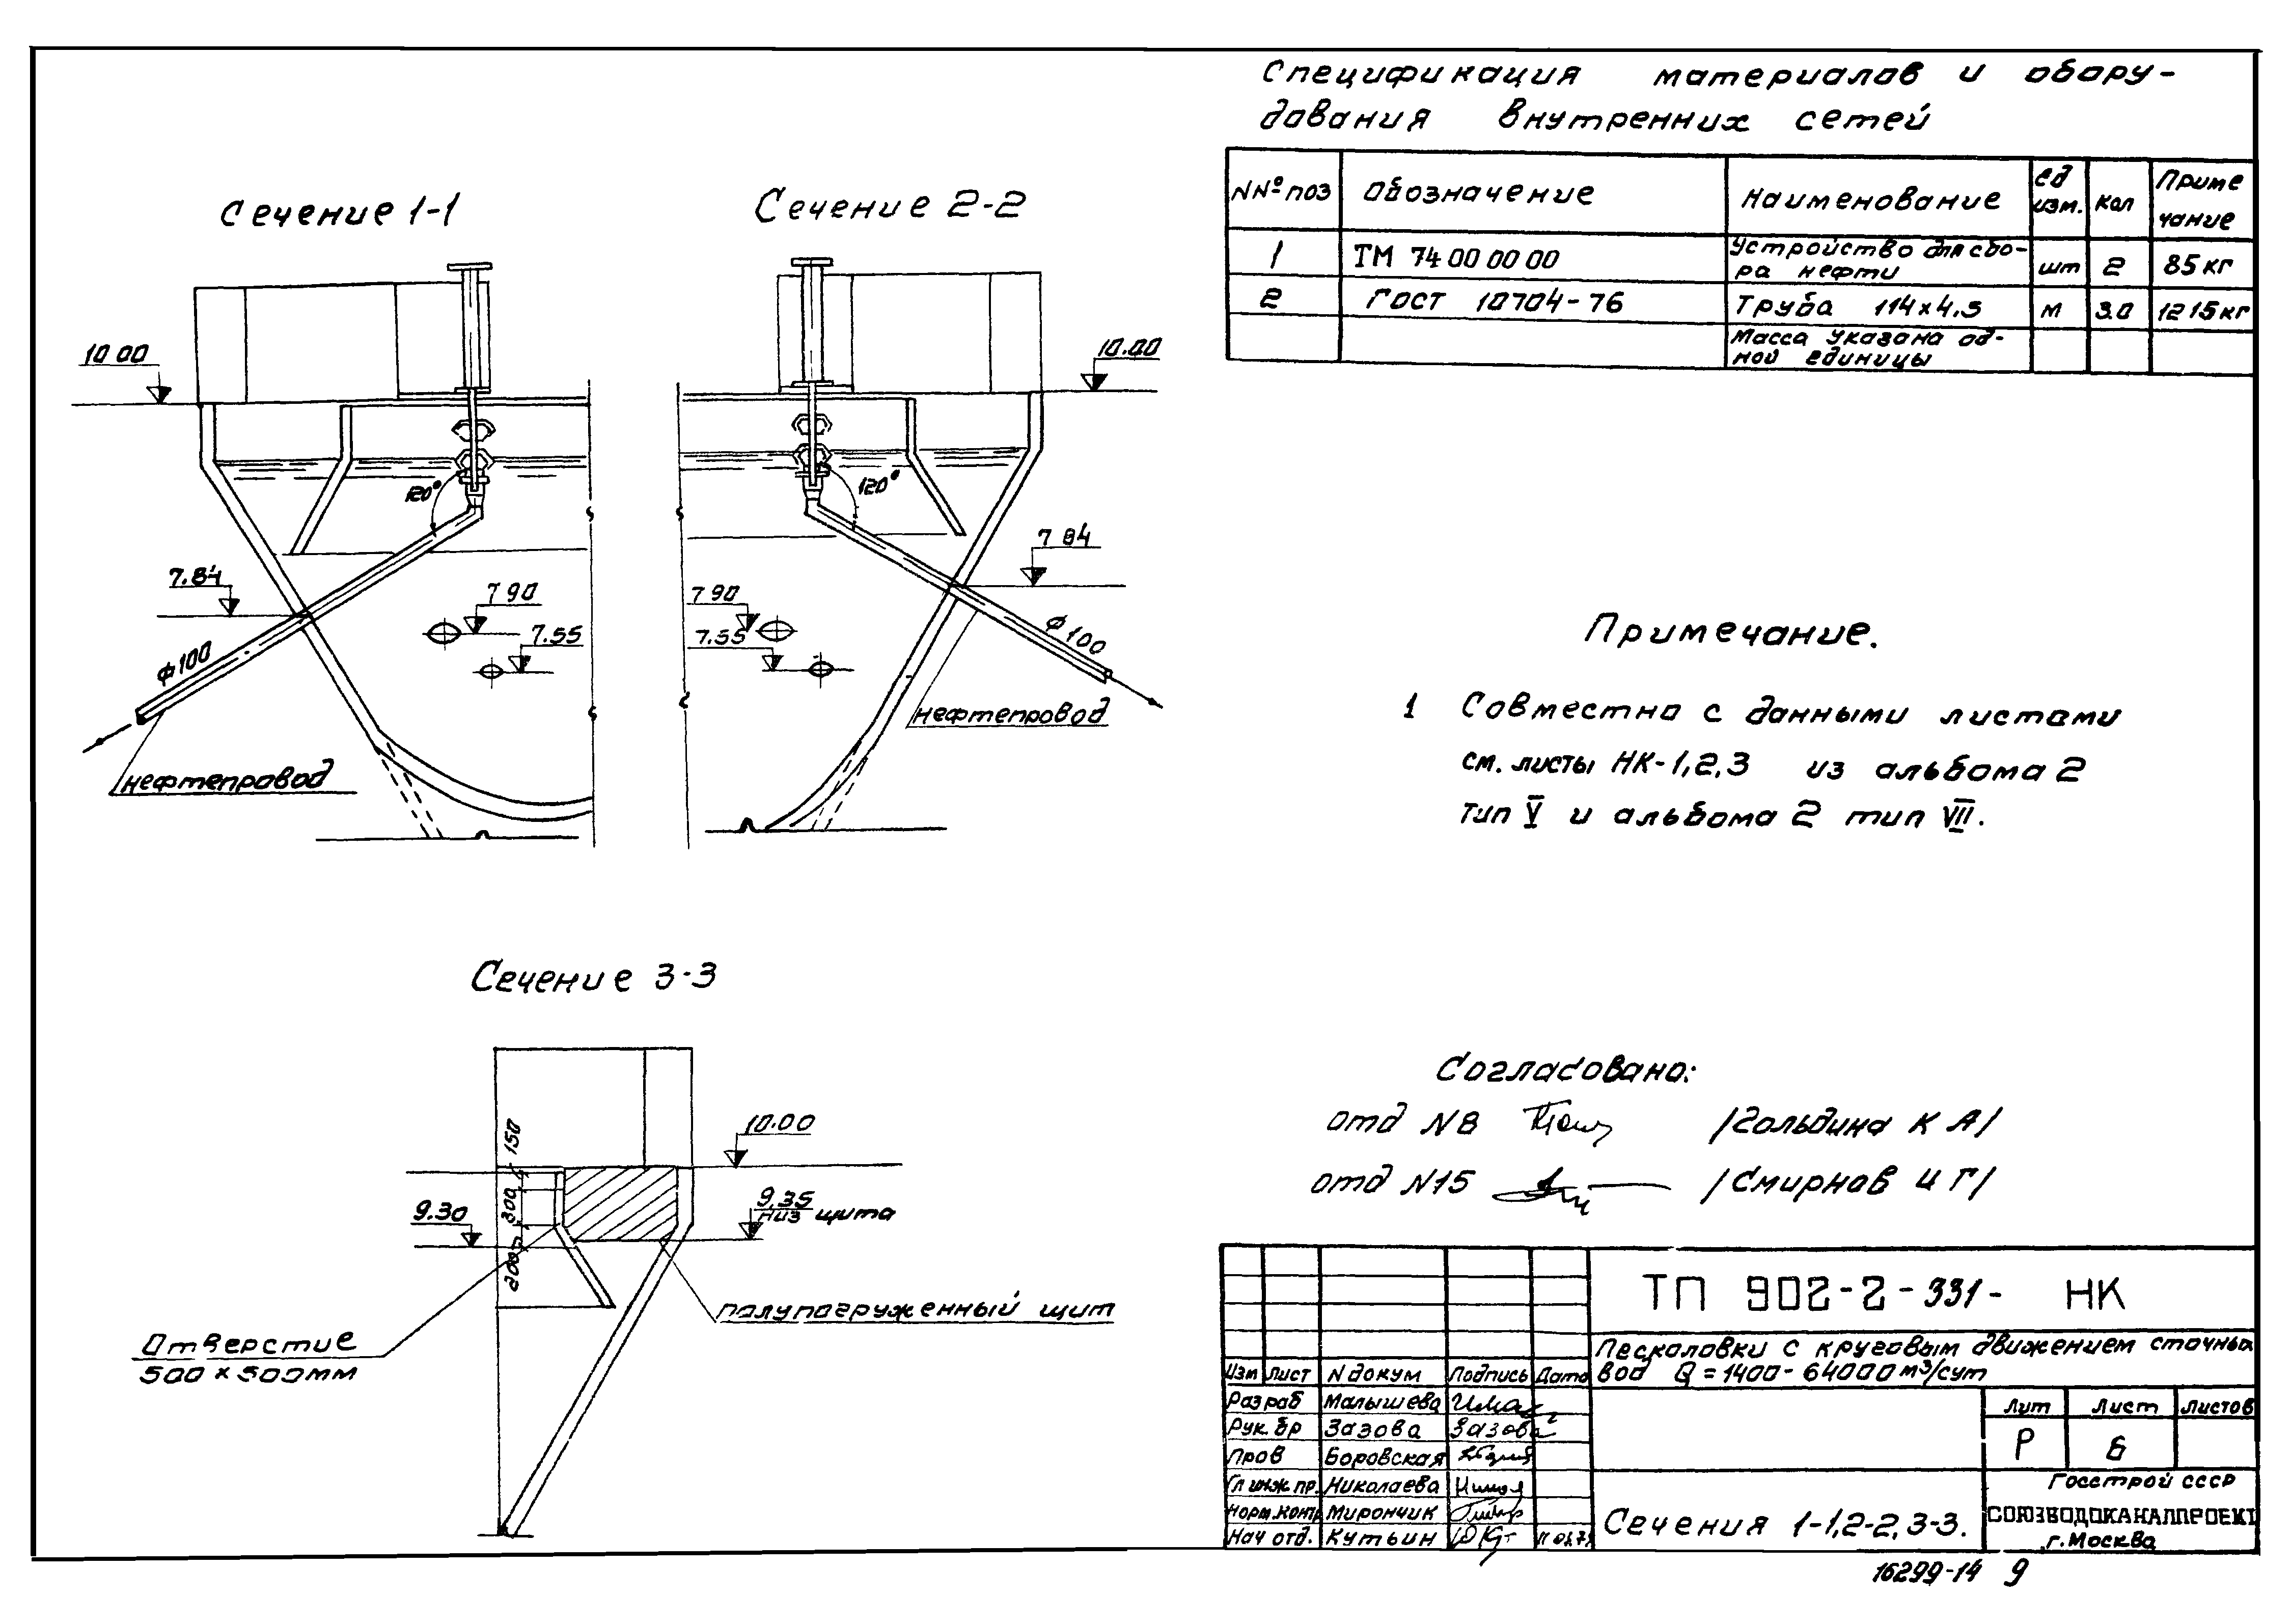 Спецификация материалов и обору-
дования внутренних сетей
NNº поз Обозначение Наименование ед изм. кол Приме чание
1 ТМ 74 00 00 00 Устройство для сбо-
ра нефти шт 2 85 кг
2 ГОСТ 10704-76 Труба 114×4.5 м 3.0 12 15 кг
Масса указана од-
ной единицы
Сечение 1-1
10 00
120°
7.84
7 90
7.55
ф100
нефтепровод
Сечение 2-2
10.00
120°
7 84
7 90
7.55
ф100
нефтепровод
Примечание.
1 Совместно с данными листами
см. листы НК-1,2,3 из альбома 2
тип V и альбома 2 тип VII.
Сечение 3-3
150
10.00
300
9.30
9,35
низ щита
200
полупогруженный щит
Отверстие
500×500мм
Согласовано:
отд N8 /Гольдина К А/
отд N15 /Смирнов И Г/
ТП 902-2-331- НК
Песколовки с круговым движением сточных
вод Q = 1400-64000 м³/сут
Изм Лист N докум Подпись Дата
Разраб Малышева
Рук. бр Зазова Зазова
Пров Боровская
Гл инж пр. Николаева
Норм. контр Мирончик
Нач отд. Кутьин
Лит Лист Листов
Р 6
Сечения 1-1,2-2, 3-3.
Госстрой СССР
СОЮЗВОДОКАНАЛПРОЕКТ
г. Москва
16299-14 9